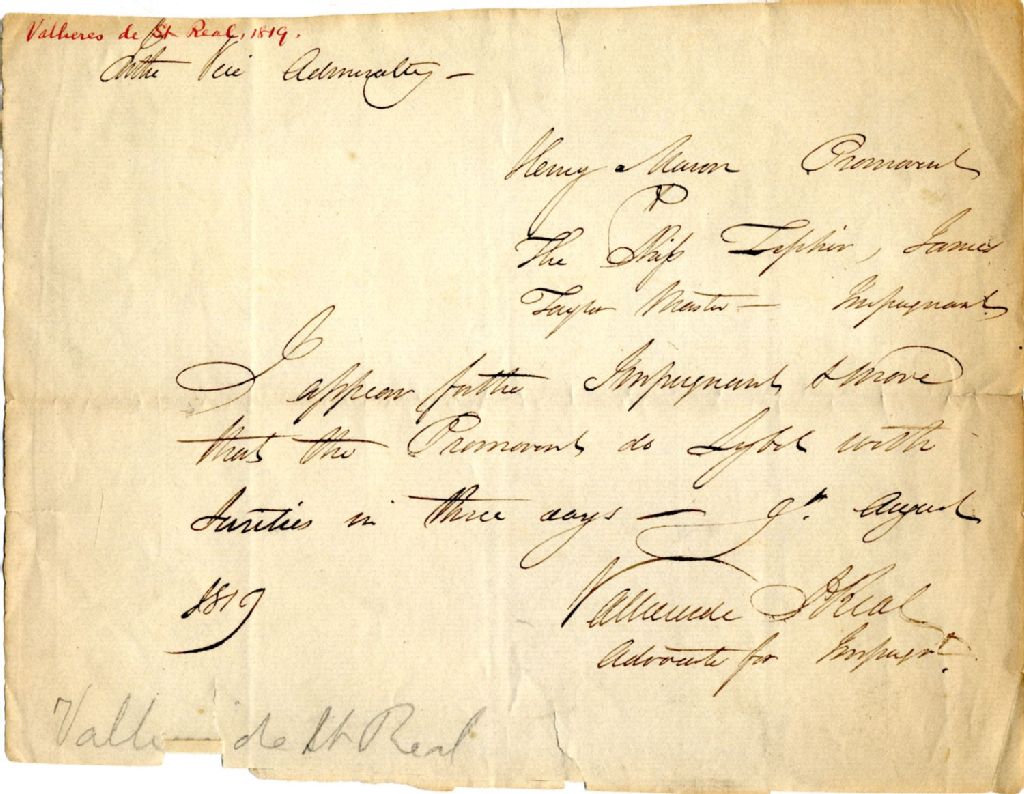 Vallieres de St Real, 1819.
In the Vice Admiralty —
Henry Mason Promovent
The Ship Zephir, James
Taylor Master — Impugnant
I appear for the Impugnant & move
that the Promovent do Lybel with
Sureties in three days — 9th. August
1819
Vallieres de St Real
Advocate for Impugt.
de St Real